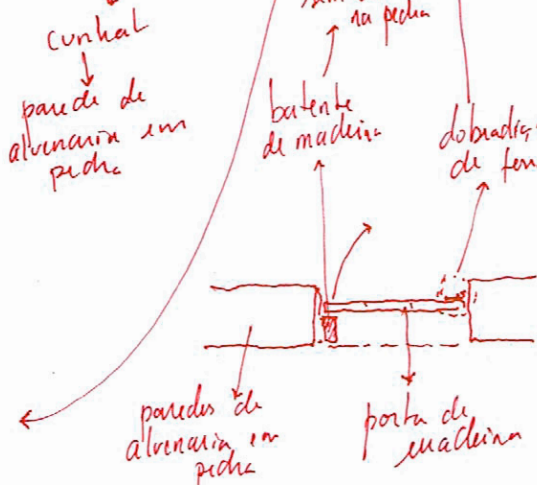 cunhal
parede de
alvenaria em
pedra
na pedra
batente
de madeira
dobradiça
de
paredes de
alvenaria em
pedra
porta de
madeira